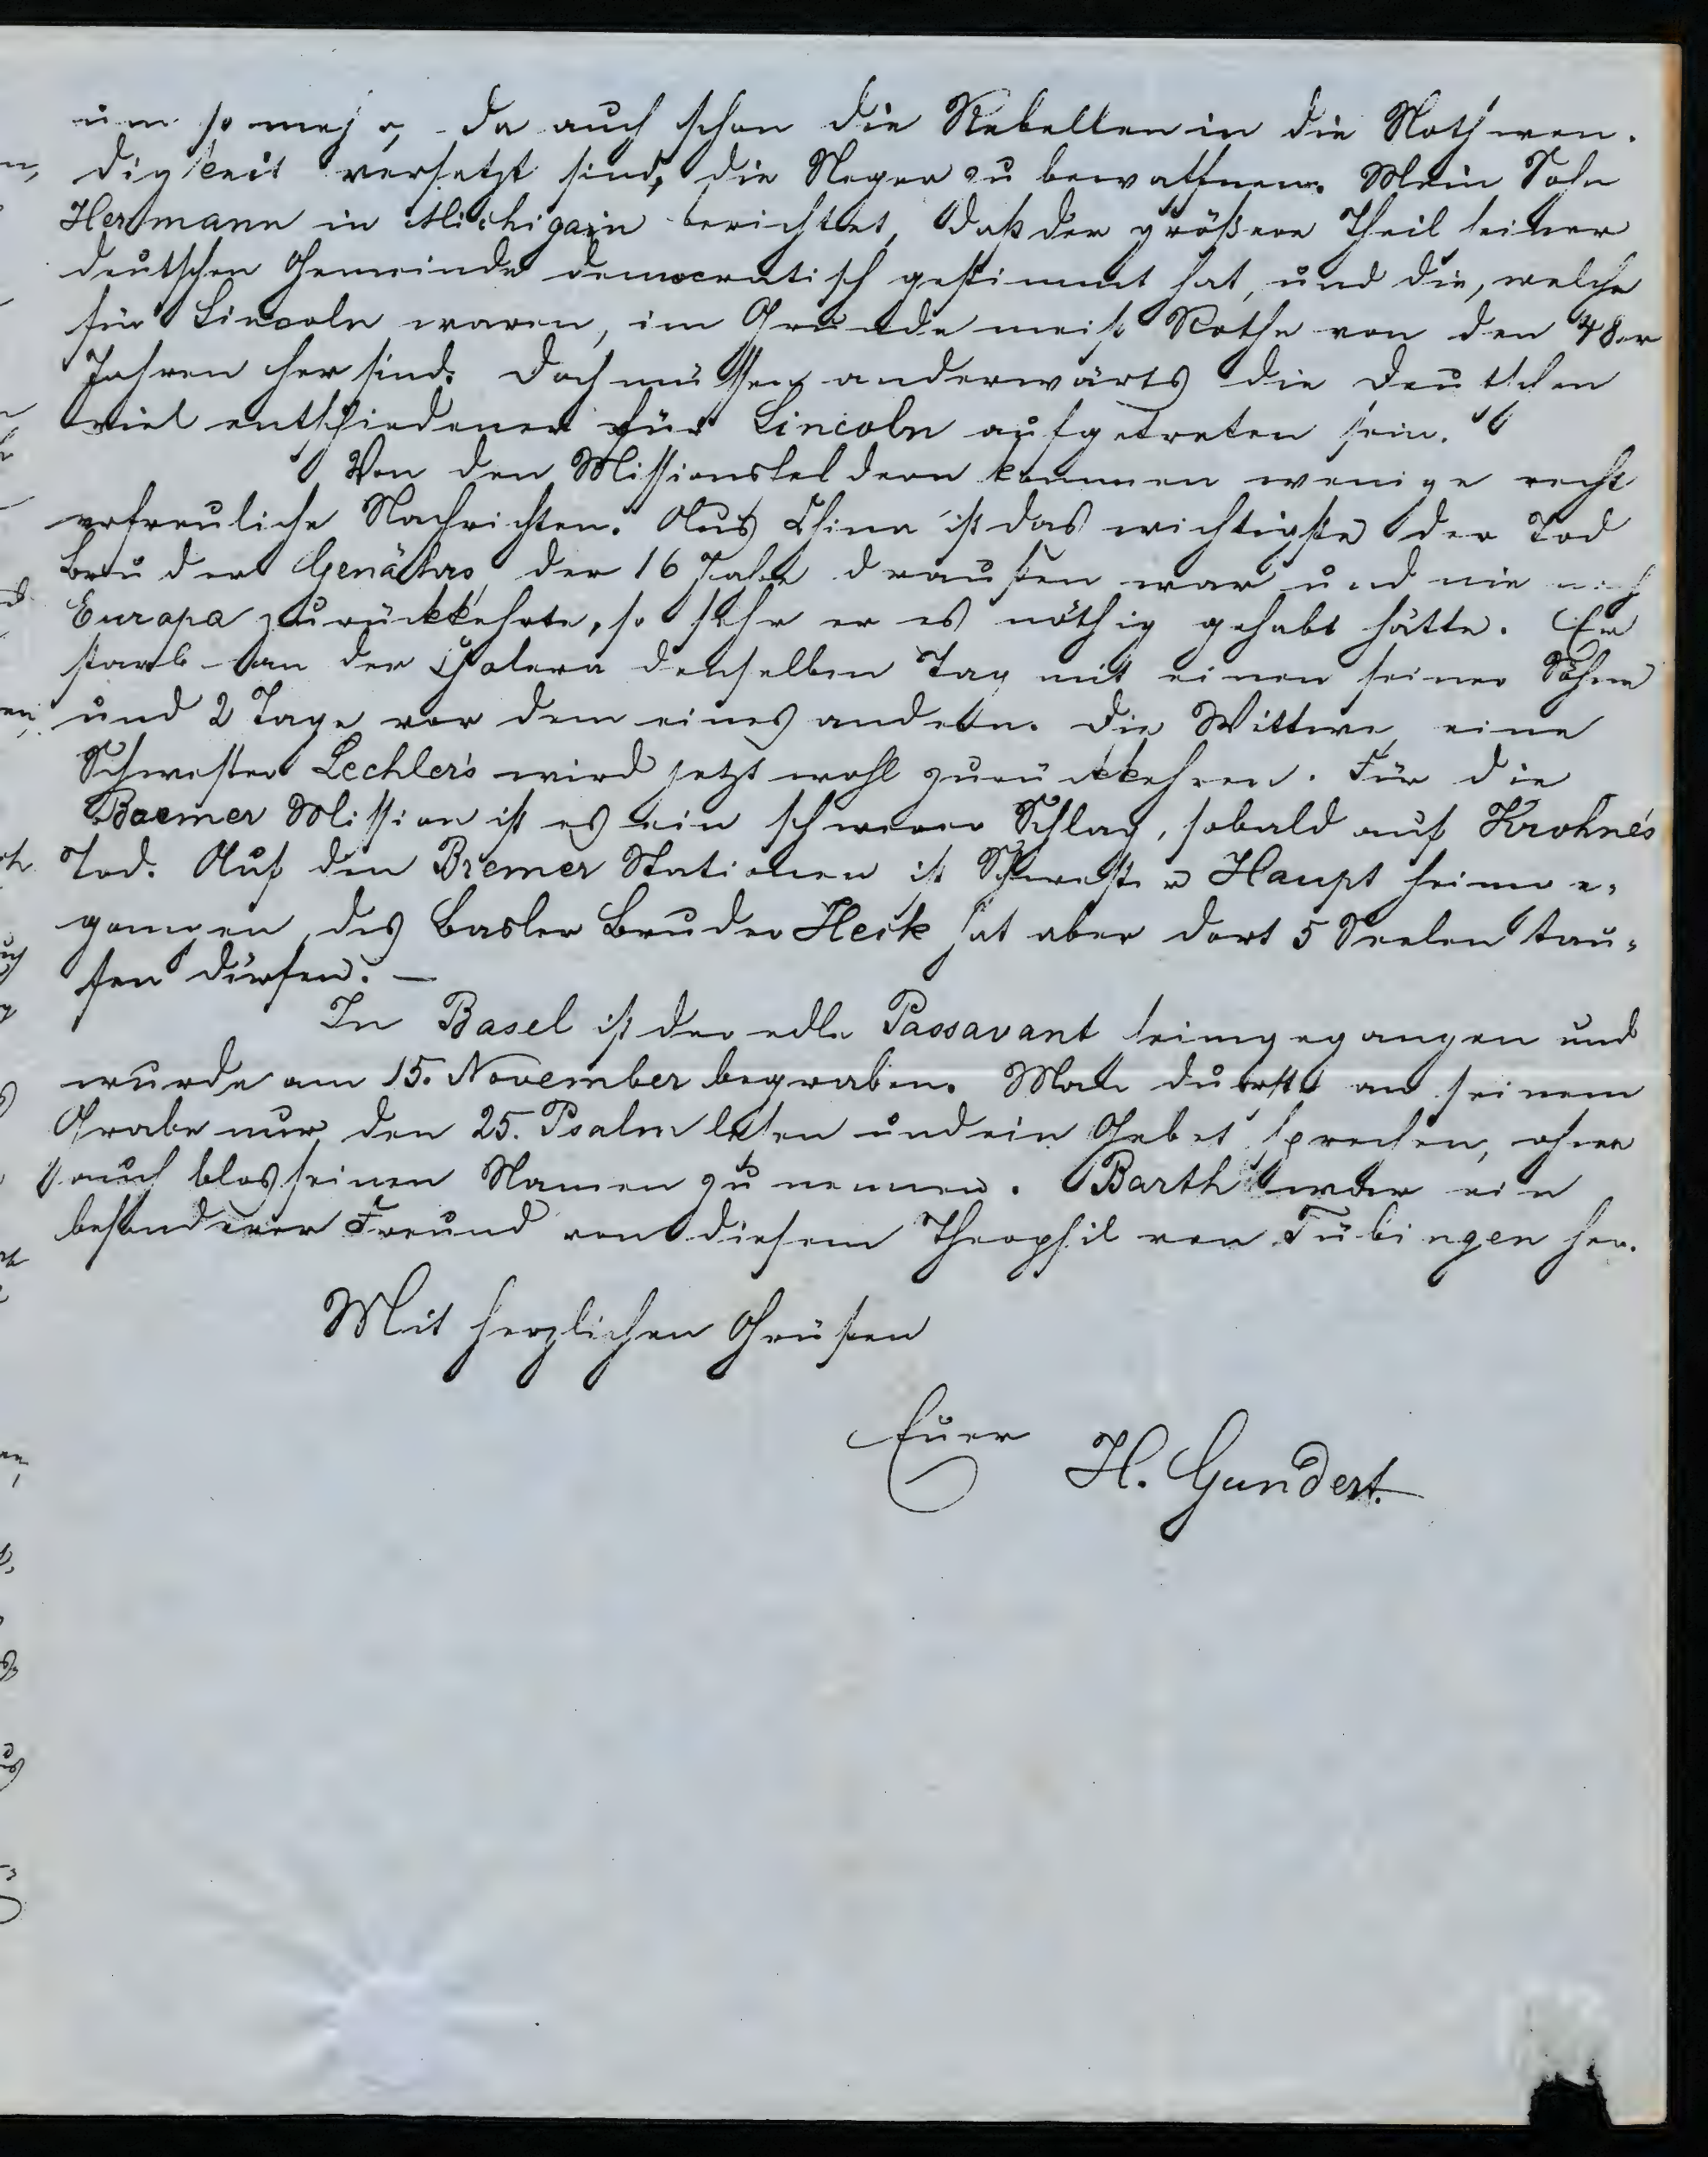 um so mehr, da auch schon die Rebellen in die Nothwen-
digkeit versetzt sind, die Neger zu bewaffnen. Mein Sohn
Hermann in Michigain berichtet, daß der größere Theil seiner
deutschen Gemeinde democratisch gestimmt hat, und die, welche
für Lincoln waren, im Grunde meist Rothe von den 48er
Jahren her sind. Doch müssen anderwärts die Deutschen
viel entschiedener für Lincoln aufgetreten sein.
Von den Missionsfeldern kommen wenige recht
erfreuliche Nachrichten. Aus China ist das wichtigste der Tod
Bruder Genährs, der 16 Jahre draußen war und nie nach
Europa zurückkehrte, so sehr er es nöthig gehabt hätte. Er
starb an der Cholera denselben Tag mit einen seiner Söhne
und 2 Tage vor dem eines andern. Die Wittwe, eine
Schwester Lechler's wird jetzt wohl zurückkehren. Für die
Barmer Mission ist es ein schwerer Schlag, sobald auf Krohne's
Tod. Auf den Bremer Stationen ist Schwester Haupt heimge-
gangen, des Basler Bruder Heck hat aber dort 5 Seelen tau-
fen dürfen. —
In Basel ist der edle Passavant heimgegangen und
wurde am 15. November begraben. Man durfte an seinem
Grabe nur den 25. Psalm lesen und ein Gebet sprechen, ohne
auch blos seinen Namen zu nennen. Barth war ein
besonderer Freund von diesem Theophil von Tübingen her.
Mit herzlichen Grüßen
Euer H. Gundert.